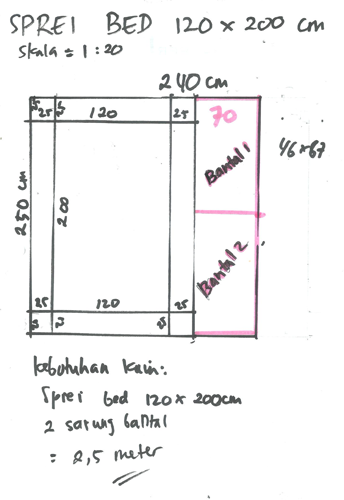 SPREI BED 120 x 200 cm
Skala = 1 : 20
240 cm
25 120 25
70
Bantal 1
46 x 67
250 cm
200
Bantal 2
25 120 25
kebutuhan kain:
Sprei bed 120 x 200cm
2 sarung bantal
= 2,5 meter